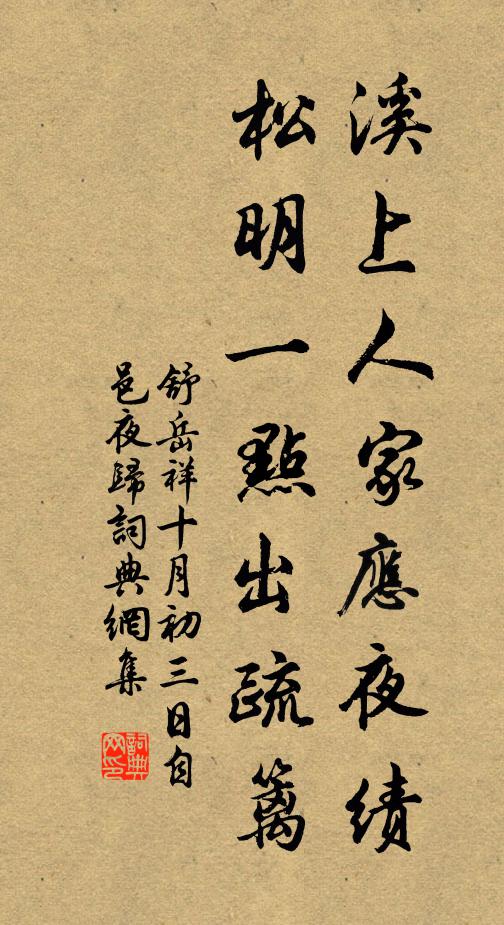 溪上人家應夜績
松明一點出疏籬
舒岳祥十月初三日自
邑夜歸詞典網集
詞典
网印